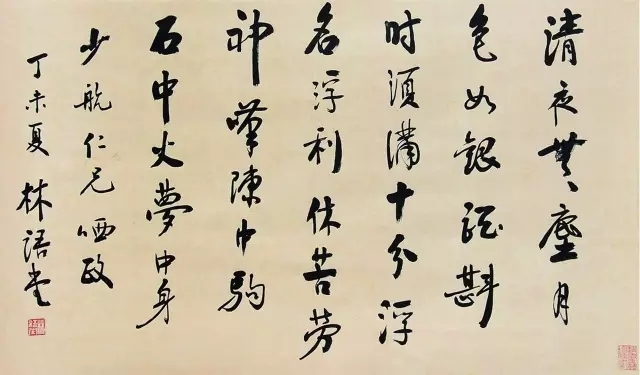 清夜無塵月
色如銀酒斟
时須滿十分浮
名浮利休苦劳
神嘆隙中駒
石中火夢中身
少航仁兄哂政
丁未夏 林語堂